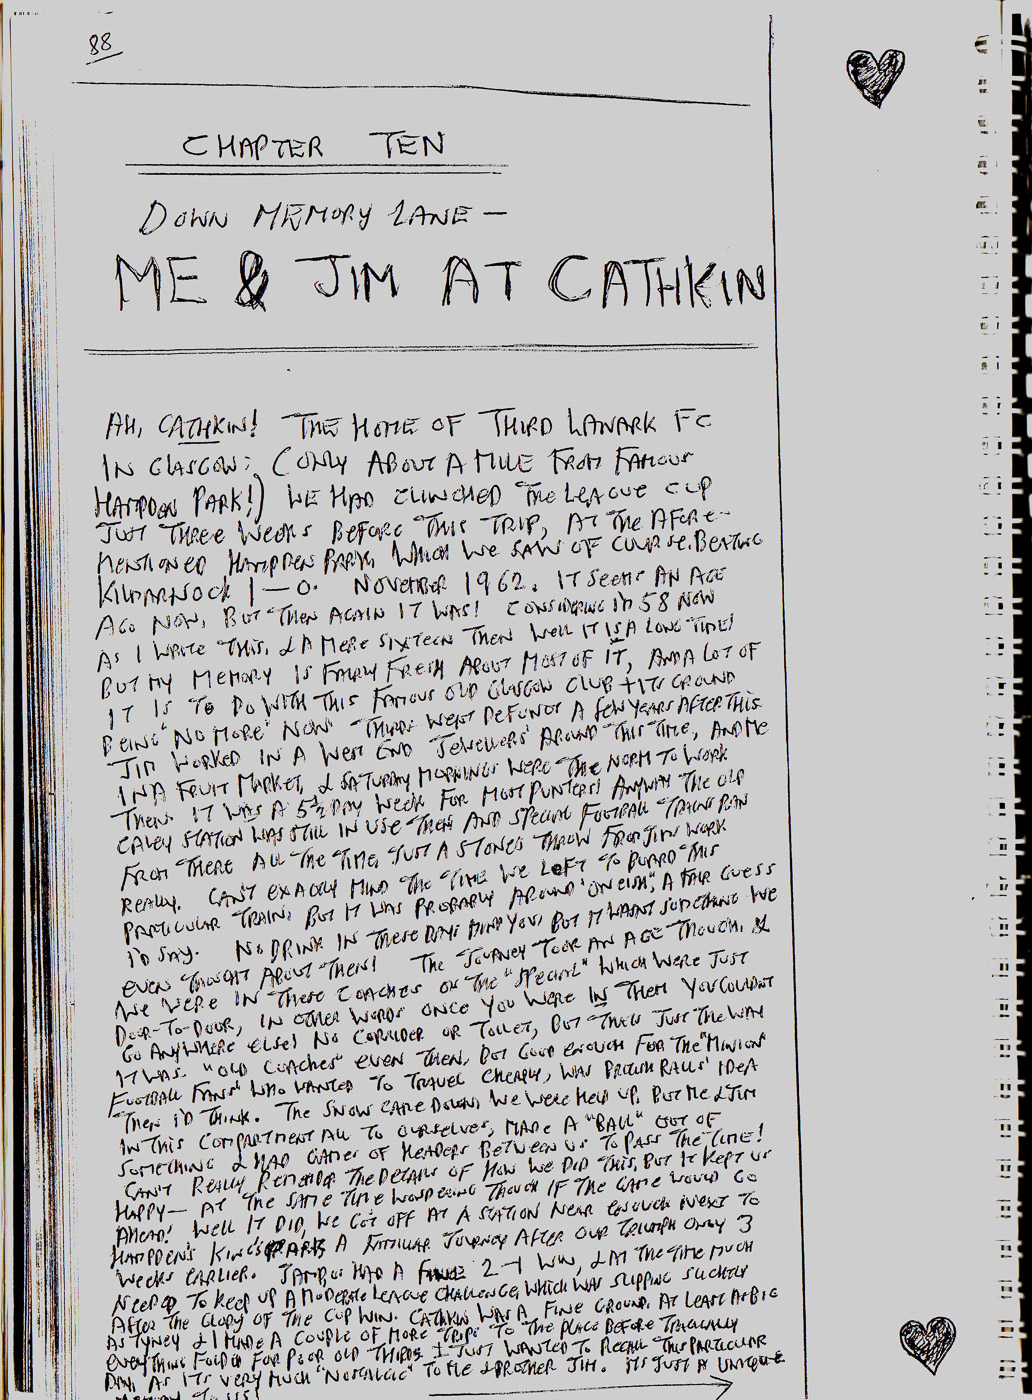 88
CHAPTER TEN
DOWN MEMORY LANE —
ME & JIM AT CATHKIN
AH, CATHKIN! THE HOME OF THIRD LANARK FC
IN GLASGOW; (ONLY ABOUT A MILE FROM FAMOUS
HAMPDEN PARK!) WE HAD CLINCHED THE LEAGUE CUP
JUST THREE WEEKS BEFORE THIS TRIP, AT THE AFORE-
MENTIONED HAMPDEN PARK, WHICH WE SAW OF COURSE. BEATING
KILMARNOCK 1—0. NOVEMBER 1962. IT SEEMS AN AGE
AGO NOW, BUT THEN AGAIN IT WAS! CONSIDERING I'M 58 NOW
AS I WRITE THIS, & A MERE SIXTEEN THEN WELL IT IS A LONG TIME!
BUT MY MEMORY IS FAIRLY FRESH ABOUT MOST OF IT, AND A LOT OF
IT IS TO DO WITH THIS FAMOUS OLD GLASGOW CLUB + ITS GROUND
BEING "NO MORE" NOW THIRDS WENT DEFUNCT A FEW YEARS AFTER THIS.
JIM WORKED IN A WEST END JEWELLERS' AROUND THIS TIME, AND ME
IN A FRUIT MARKET, & SATURDAY MORNINGS WERE THE NORM TO WORK
THEN. IT WAS A 5½ DAY WEEK FOR MOST PUNTERS! ANYWAY THE OLD
CALEY STATION WAS STILL IN USE THEN AND SPECIAL FOOTBALL TRAINS RAN
FROM THERE ALL THE TIME, JUST A STONE'S THROW FROM JIM'S WORK
REALLY. CAN'T EXACTLY MIND THE TIME WE LEFT TO BOARD THIS
PARTICULAR TRAIN, BUT IT WAS PROBABLY AROUND "ONEISH", A FAIR GUESS
I'D SAY. NO DRINK IN THESE DAYS MIND YOU, BUT IT WASN'T SOMETHING WE
EVEN THOUGHT ABOUT THEN! THE JOURNEY TOOK AN AGE THOUGH, &
WE WERE IN THESE COACHES ON THE "SPECIAL" WHICH WERE JUST
DOOR-TO-DOOR, IN OTHER WORDS ONCE YOU WERE IN THEM YOU COULDN'T
GO ANYWHERE ELSE! NO CORRIDER OR TOILET, BUT THAT'S JUST THE WAY
IT WAS. "OLD COACHES" EVEN THEN, BUT GOOD ENOUGH FOR THE "MINION
FOOTBALL FANS" WHO WANTED TO TRAVEL CHEAPLY, WAS BRITISH RAILS' IDEA
THEN I'D THINK. THE SNOW CAME DOWN, WE WERE HELD UP, BUT ME & JIM
IN THIS COMPARTMENT ALL TO OURSELVES, MADE A "BALL" OUT OF
SOMETHING & HAD GAMES OF HEADERS BETWEEN US TO PASS THE TIME!
CAN'T REALLY REMEMBER THE DETAILS OF HOW WE DID THIS, BUT IT KEPT US
HAPPY — AT THE SAME TIME WONDERING THOUGH IF THE GAME WOULD GO
AHEAD! WELL IT DID, WE GOT OFF AT A STATION NEAR ENOUGH NEXT TO
HAMPDEN'S KING'S PARK, A FAMILIAR JOURNEY AFTER OUR TRIUMPH ONLY 3
WEEKS EARLIER. JAMBOS HAD A FINE 2—1 WIN, & AT THE TIME MUCH
NEEDED TO KEEP UP A MODERATE LEAGUE CHALLENGE, WHICH WAS SLIPPING SLIGHTLY
AFTER THE GLORY OF THE CUP WIN. CATHKIN WAS A FINE GROUND. AT LEAST AS BIG
AS TYNEY & I MADE A COUPLE OF MORE TRIPS TO THE PLACE BEFORE TRAGICALLY
EVERYTHING FOLDED FOR POOR OLD THIRDS. I JUST WANTED TO RECALL THIS PARTICULAR
DAY, AS IT'S VERY MUCH "NOSTALGIC" TO ME & BROTHER JIM. IT'S JUST A UNIQUE
MEMORY TO US!